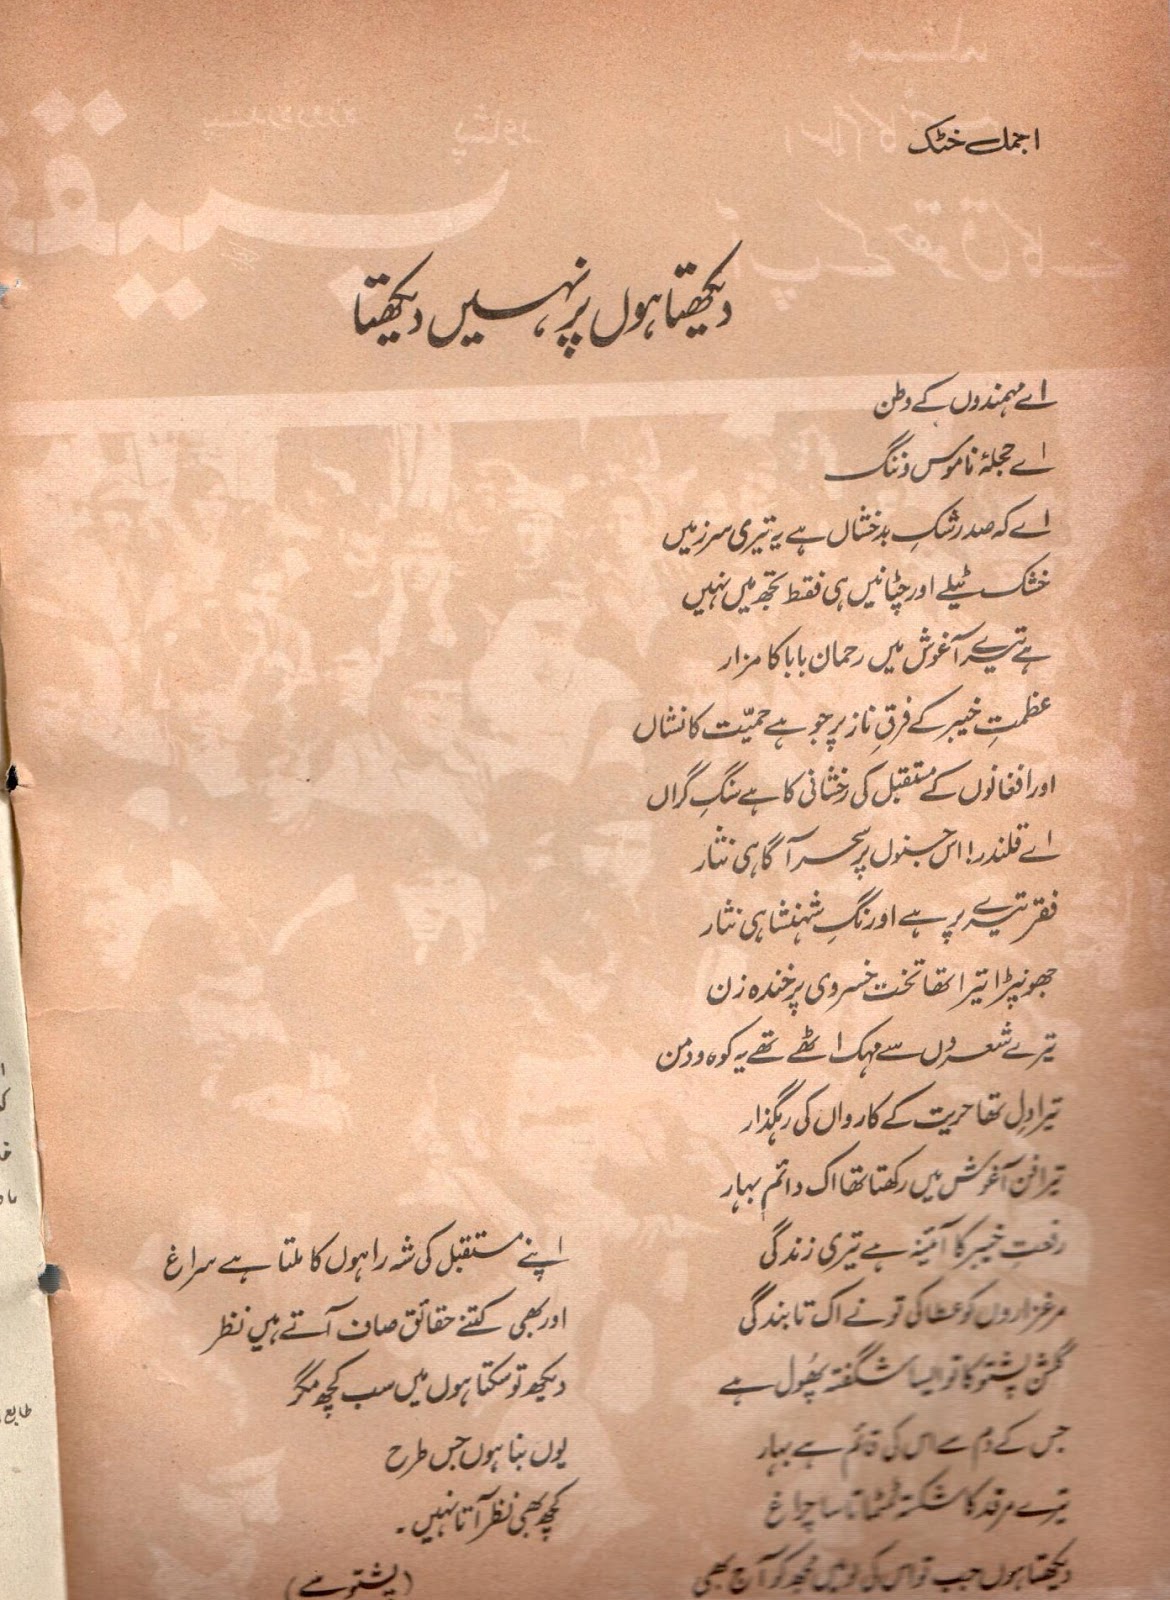 اجمل خٹک
دیکھتا ہوں پر نہیں دیکھتا
اے مہمندوں کے وطن
اے حجلۂ ناموس و ننگ
اے کہ صد رشکِ بدخشاں ہے یہ تیری سرزمیں
خشک ٹیلے اور چٹانیں ہی فقط تجھ میں نہیں
ہے تیرے آغوش میں رحمان بابا کا مزار
عظمتِ خیبر کے فرقِ ناز پر جو ہے حمیّت کا نشاں
اور افغانوں کے مستقبل کی رخشانی کا ہے سنگِ گراں
اے قلندر! اس جنوں پر سحر آگاہی نثار
فقر تیرے پر ہے اورنگِ شہنشاہی نثار
جھونپڑا تیرا تھا تخت خسروی پر خندہ زن
تیرے شعروں سے مہک اٹھے تھے یہ کوہ و دمن
تیرا دل تھا حریت کے کارواں کی رہگذار
تیرا فن آغوش میں رکھتا تھا اک دائم بہار
رفعتِ خیبر کا آئینہ ہے تیری زندگی
مرغزاروں کو عطا کی تو نے اک تابندگی
گلشن پشتو کا تو ایسا شگفتہ پھول ہے
جس کے دم سے اس کی قائم ہے بہار
تیرے مرقد کا شکستہ ٹمٹماتا سا چراغ
دیکھتا ہوں جب تو اس کی لو میں مجھ کو آج بھی
اپنے مستقبل کی شہ راہوں کا ملتا ہے سراغ
اور بھی کتنے حقائق صاف آتے ہیں نظر
دیکھ تو سکتا ہوں میں سب کچھ مگر
یوں بنا ہوں جس طرح
کچھ بھی نظر آتا نہیں۔
(پشتو سے)